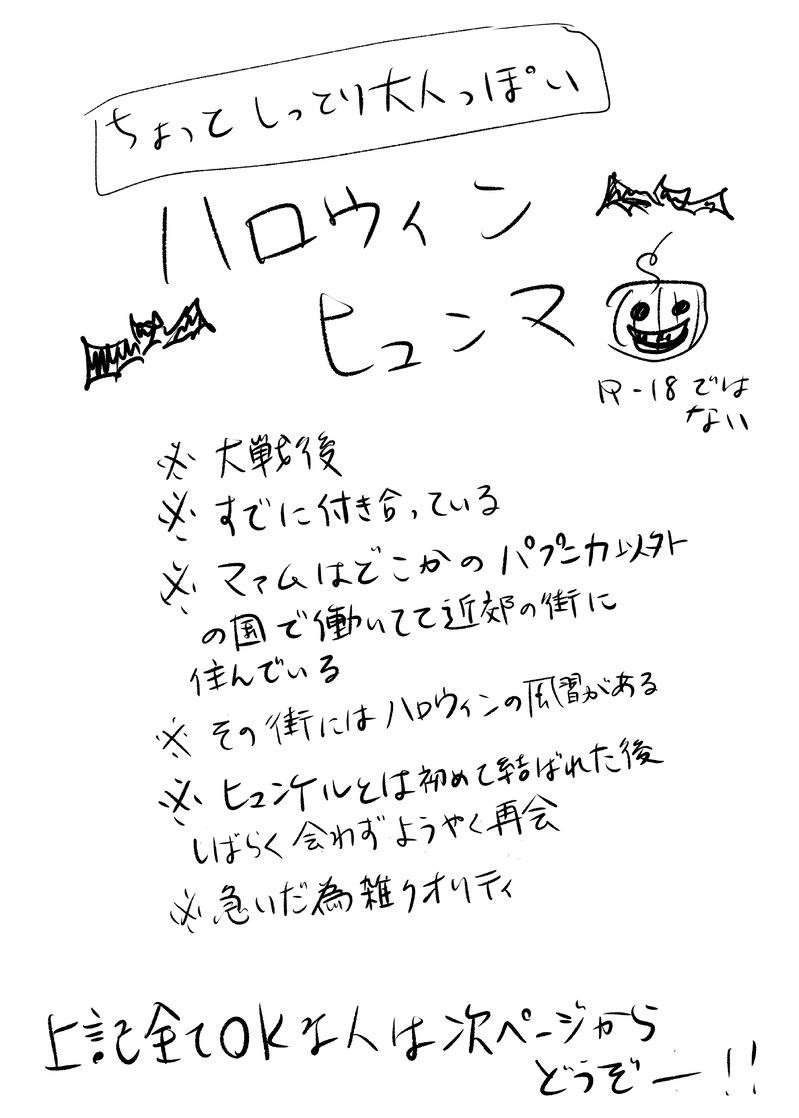 ちょっとしってり大人っぽい
ハロウィン
ヒュンマ
R-18では
ない
※ 大戦後
※ すでに付き合っている
※ マァムはどこかのパプニカ以外
の国で働いてて近郊の街に
住んでいる
※ その街にはハロウィンの風習がある
※ ヒュンケルとは初めて結ばれた後
しばらく会わずようやく再会
※ 急いだ為雑クオリティ
上記全てOKな人は次ページから
どうぞー!!